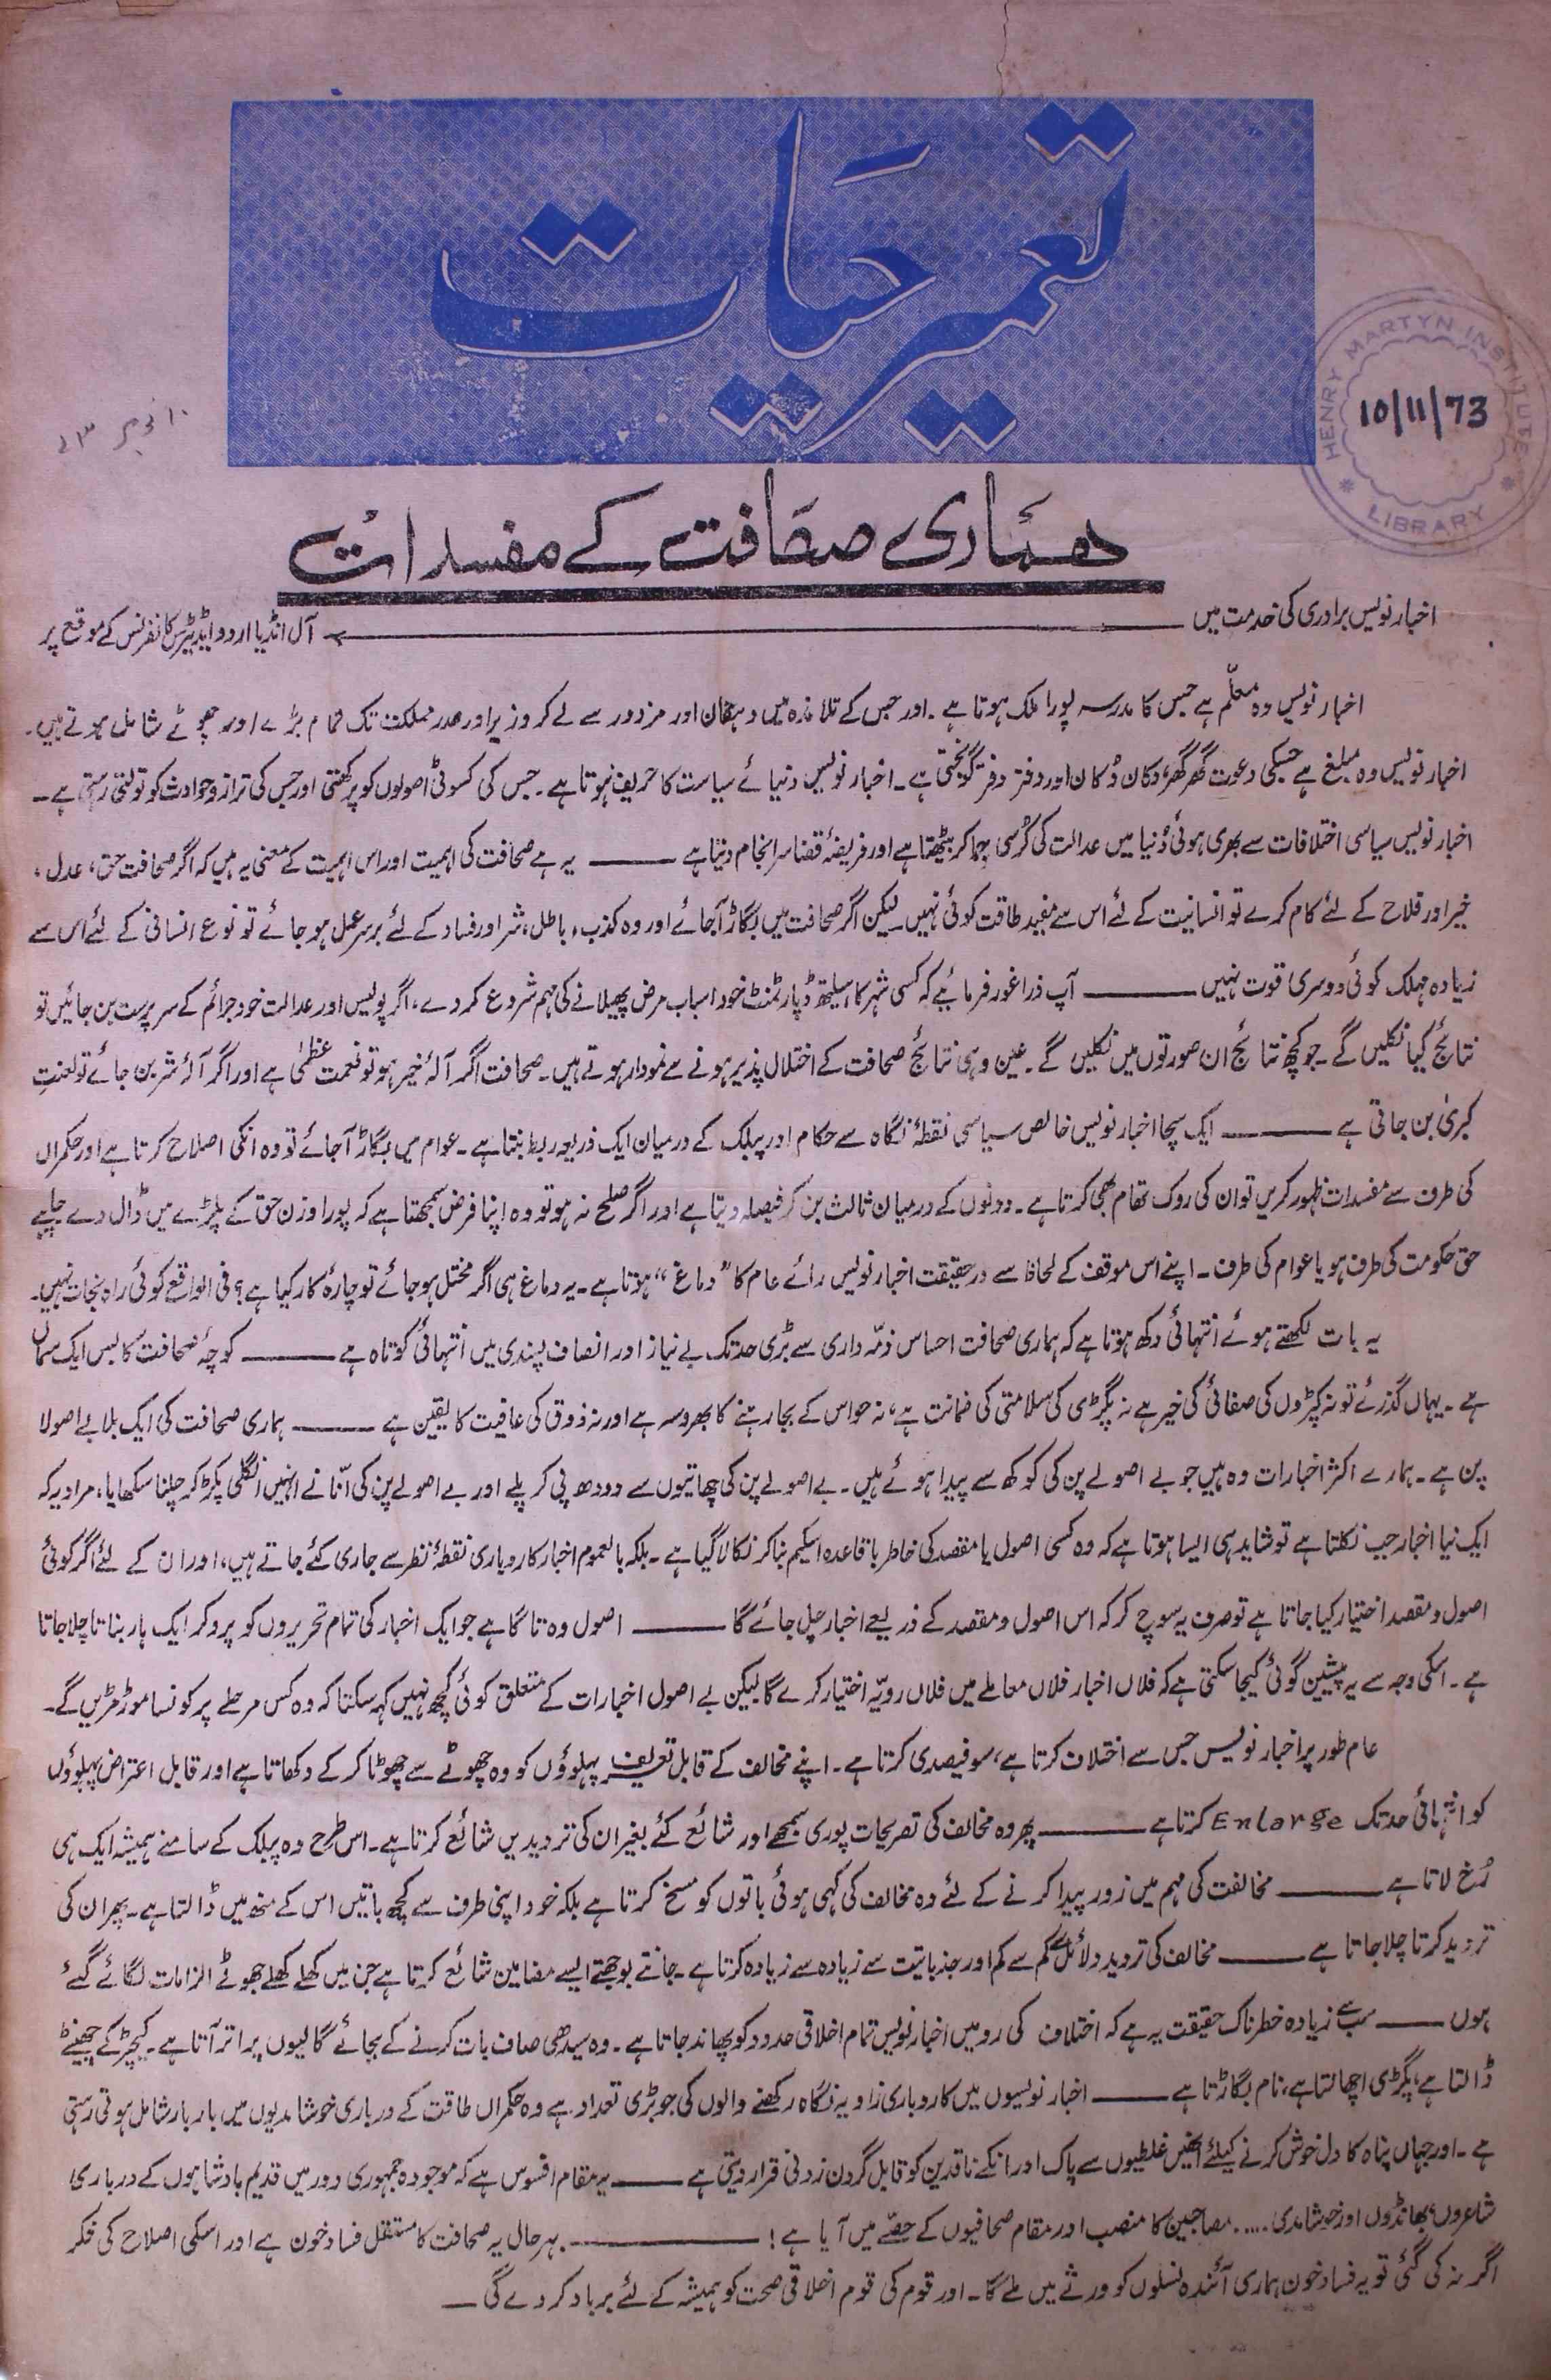 تعمیر حیات
HENRY MARTYN INSTITUTE
LIBRARY
10/11/73
۱۰ نومبر ۷۳ء
ہماری صحافت کے مفسدات
اخبار نویس برادری کی خدمت میں ——— آل انڈیا اردو ایڈیٹرس کانفرنس کے موقع پر
اخبار نویس وہ معلّم ہے جس کا مدرسہ پورا ملک ہوتا ہے۔ اور جس کے تلامذہ میں دہقان اور مزدور سے لے کر وزیر اور صدر مملکت تک تمام بڑے اور چھوٹے شامل ہوتے ہیں۔
اخبار نویس وہ مبلغ ہے جسکی دعوت گھر گھر، دکان دکان اور دفتر دفتر گونجتی ہے۔ اخبار نویس دنیائے سیاست کا حریف ہوتا ہے۔ جس کی کسوٹی اصولوں کو پرکھتی اور جس کی ترازو حوادث کو تولتی رہتی ہے۔
اخبار نویس سیاسی اختلافات سے بھری ہوئی دُنیا میں عدالت کی کُرسی بچھا کر بیٹھتا ہے اور فریضۂ قضا سرانجام دیتا ہے ——— یہ ہے صحافت کی اہمیت اور اس اہمیت کے معنی یہ ہیں کہ اگر صحافت حق، عدل،
خیر اور فلاح کے لئے کام کرے تو انسانیت کے لئے اس سے مفید طاقت کوئی نہیں۔ لیکن اگر صحافت میں بگاڑ آجائے اور وہ کذب، باطل، شر اور فساد کے لئے برسر عمل ہو جائے تو نوع انسانی کے لئے اس سے
زیادہ مہلک کوئی دوسری قوت نہیں ——— آپ ذرا غور فرمائیے کہ کسی شہر کا ہیلتھ ڈپارٹمنٹ خود اسباب مرض پھیلانے کی مہم شروع کردے، اگر پولیس اور عدالت خود جرائم کے سرپرست بن جائیں تو
نتائج کیا نکلیں گے۔ جو کچھ نتائج ان صورتوں میں نکلیں گے۔ عین وہی نتائج صحافت کے اختلال پذیر ہونے سے نمودار ہوتے ہیں۔ صحافت اگر آلۂ خیر ہو تو نعمت عظمیٰ ہے اور اگر آلۂ شر بن جائے تو لعنتِ
کبریٰ بن جاتی ہے ——— ایک سچا اخبار نویس خالص سیاسی نقطۂ نگاہ سے حکام اور پبلک کے درمیان ایک ذریعہ ربط بنتا ہے۔ عوام میں بگاڑ آجائے تو وہ انکی اصلاح کرتا ہے اور حکمراں
کی طرف سے مفسدات ظہور کریں تو ان کی روک تھام بھی کرتا ہے۔ دونوں کے درمیان ثالث بن کر فیصلہ دیتا ہے اور اگر صلح نہ ہو تو وہ اپنا فرض سمجھتا ہے کہ پورا وزن حق کے پلڑے میں ڈال دے چاہے
حق حکومت کی طرف ہو یا عوام کی طرف۔ اپنے اس موقف کے لحاظ سے درحقیقت اخبار نویس رائے عام کا "دماغ" ہوتا ہے۔ یہ دماغ ہی اگر مختل ہو جائے تو چارۂ کار کیا ہے؟ فی الواقع کوئی راہ نجات نہیں۔
یہ بات لکھتے ہوئے انتہائی دکھ ہوتا ہے کہ ہماری صحافت احساس ذمّہ داری سے بڑی حد تک بے نیاز اور انصاف پسندی میں انتہائی کوتاہ ہے ——— کوچۂ صحافت کا بس ایک سماں
ہے۔ یہاں گذرئے تو نہ کپڑوں کی صفائی کی خیر ہے نہ پگڑی کی سلامتی کی ضمانت ہے، نہ حواس کے بجا رہنے کا بھروسہ ہے اور نہ ذوق کی عافیت کا یقین ہے ——— ہماری صحافت کی ایک بلا بے اصولا
پن ہے۔ ہمارے اکثر اخبارات وہ ہیں جو بے اصولے پن کی کوکھ سے پیدا ہوئے ہیں۔ بے اصولے پن کی چھاتیوں سے دودھ پی کر پلے اور بے اصولے پن کی انّا نے انہیں انگلی پکڑ کر چلنا سکھایا، مراد یہ کہ
ایک نیا اخبار جب نکلتا ہے تو شاید ہی ایسا ہوتا ہے کہ وہ کسی اصول یا مقصد کی خاطر باقاعدہ اسکیم بنا کر نکالا گیا ہے۔ بلکہ بالعموم اخبار کاروباری نقطۂ نظر سے جاری کئے جاتے ہیں، اور ان کے لئے اگر کوئی
اصول و مقصد اختیار کیا جاتا ہے تو صرف یہ سوچ کر کہ اس اصول و مقصد کے ذریعے اخبار چل جائے گا ——— اصول وہ تاگا ہے جو ایک اخبار کی تمام تحریروں کو پرو کر ایک ہار بناتا چلا جاتا
ہے۔ اسکی وجہ سے یہ پیشین گوئی کیجا سکتی ہے کہ فلاں اخبار فلاں معاملے میں فلاں رویّہ اختیار کرے گا لیکن بے اصول اخبارات کے متعلق کوئی کچھ نہیں کہہ سکتا کہ وہ کس مرحلے پر کونسا موڑ مڑیں گے۔
عام طور پر اخبار نویس جس سے اختلاف کرتا ہے، سو فیصدی کرتا ہے۔ اپنے مخالف کے قابل تعریف پہلوؤں کو وہ چھوٹے سے چھوٹا کر کے دکھاتا ہے اور قابل اعتراض پہلوؤں
کو انتہائی حد تک Enlarge کرتا ہے ——— پھر وہ مخالف کی تصریحات پوری سمجھے اور شائع کئے بغیر ان کی تردیدیں شائع کرتا ہے۔ اس طرح وہ پبلک کے سامنے ہمیشہ ایک ہی
رُخ لاتا ہے ——— مخالفت کی مہم میں زور پیدا کرنے کے لئے وہ مخالف کی کہی ہوئی باتوں کو مسخ کرتا ہے بلکہ خود اپنی طرف سے کچھ باتیں اس کے منھ میں ڈالتا ہے۔ پھر ان کی
تردید کرتا چلا جاتا ہے ——— مخالف کی تردید دلائل سے کم سے کم اور جذباتیت سے زیادہ سے زیادہ کرتا ہے۔ جانتے بوجھتے ایسے مضامین شائع کرتا ہے جن میں کھلے کھلے جھوٹے الزامات لگائے گئے
ہوں ——— سب سے زیادہ خطرناک حقیقت یہ ہے کہ اختلاف کی رو میں اخبار نویس تمام اخلاقی حدود کو پھاند جاتا ہے۔ وہ سیدھی صاف بات کرنے کے بجائے گالیوں پر اتر آتا ہے۔ کیچڑ کے چھینٹے
ڈالتا ہے، پگڑی اچھالتا ہے، نام بگاڑتا ہے ——— اخبار نویسوں میں کاروباری زاویہ نگاہ رکھنے والوں کی جو بڑی تعداد ہے وہ حکمراں طاقت کے درباری خوشامدیوں میں بار بار شامل ہوتی رہتی
ہے۔ اور جہاں پناہ کا دل خوش کرنے کیلئے انھیں غلطیوں سے پاک اور انکے ناقدین کو قابل گردن زدنی قرار دیتی ہے ——— یہ مقام افسوس ہے کہ موجودہ جمہوری دور میں قدیم بادشاہوں کے درباری
شاعروں، بھانڈوں اور خوشامدی ..... مصاحبین کا منصب اور مقام صحافیوں کے حصّے میں آیا ہے! ——— بہرحال یہ صحافت کا مستقل فساد خون ہے اور اسکی اصلاح کی فکر
اگر نہ کی گئی تو یہ فساد خون ہماری آئندہ نسلوں کو ورثے میں ملے گا۔ اور قوم کی قوم اخلاقی صحت کو ہمیشہ کے لئے برباد کر دے گی۔